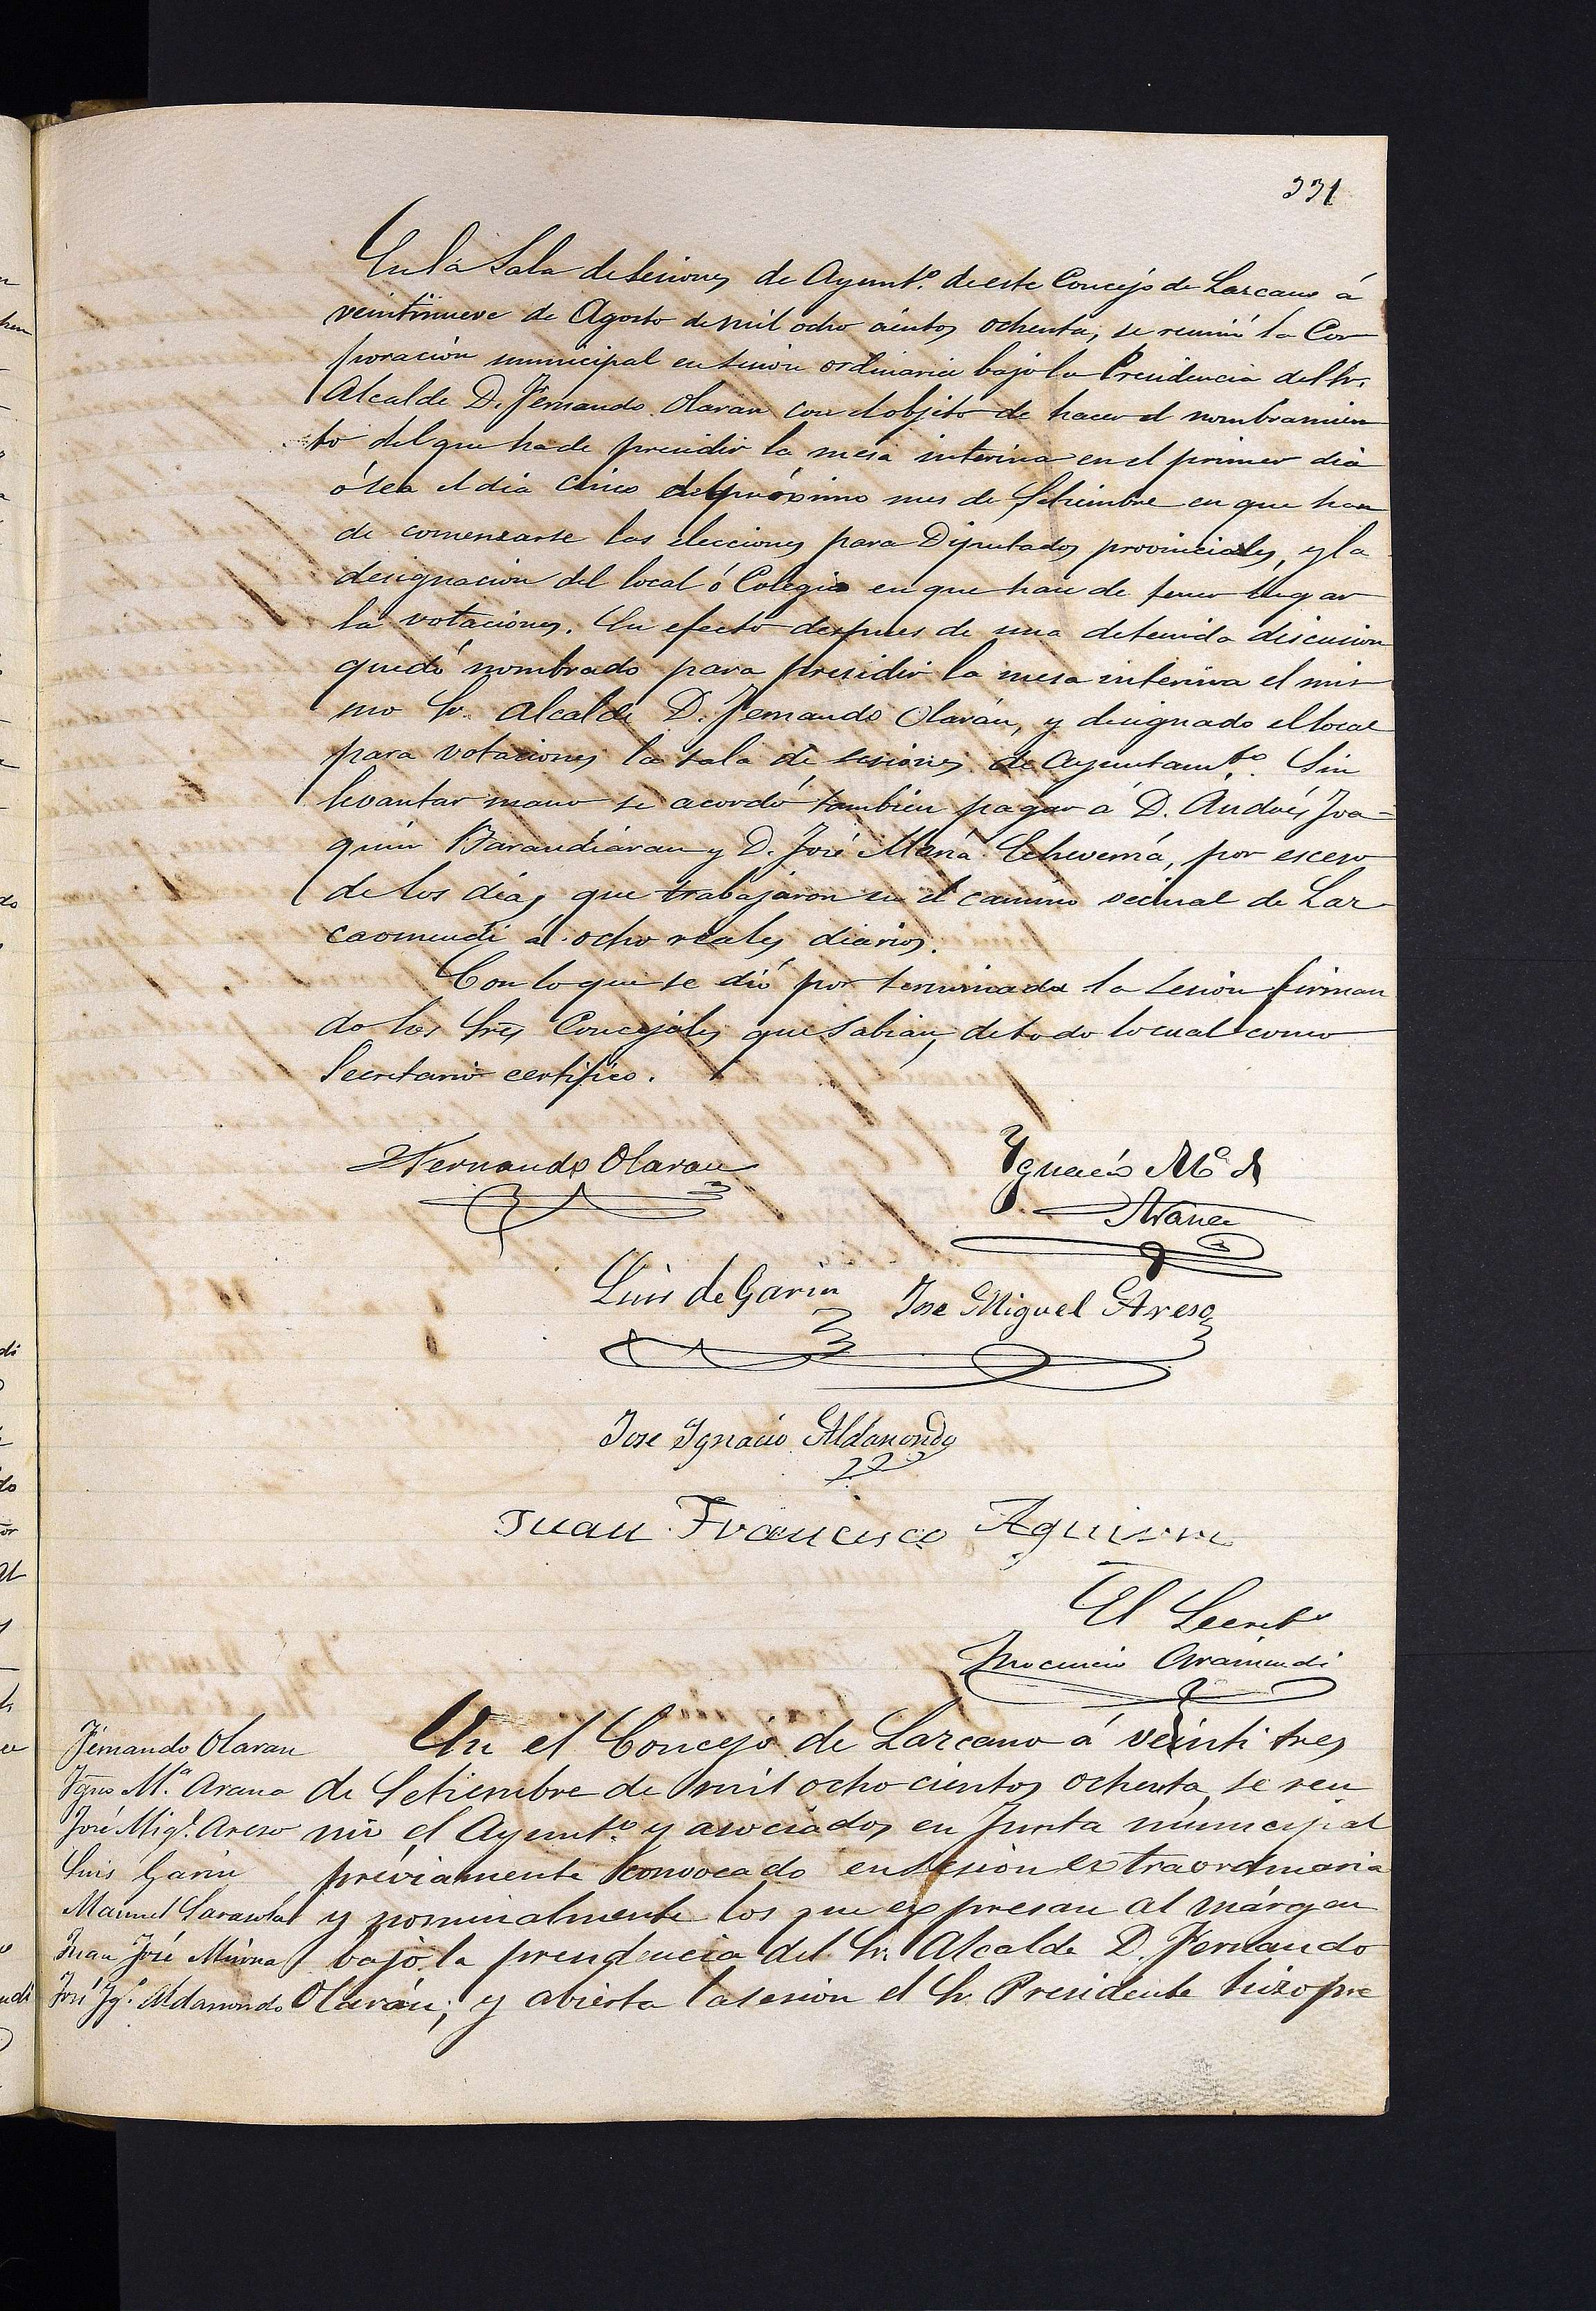 331
En la Sala de sesiones de Ayunt.º de este Concejo de Lazcano á
veintinueve de Agosto de mil ocho cientos ochenta, se reunió la Cor
poración municipal en sesion ordinaria bajo la Presidencia del Sr.
Alcalde D. Fernando Olaran con el objeto de hacer el nombramien
to del que ha de presidir la mesa interina en el primer dia
ó sea el dia cinco del próximo mes de Setiembre en que han
de comenzarse las elecciones para Diputados provinciales, y la
designacion del local ó Colegio en que han de tener lugar
la votaciones. En efecto despues de una detenida discusion
quedó nombrado para presidir la mesa interina el mis
mo Sr. Alcalde D. Fernando Olarán, y designado el local
para votaciones la sala de sesiones de Ayuntam.to Sin
levantar mano se acordó tambien pagar á D. Andrés Joa=
quin Barandiáran y D. José Maria Echeverría, por esceso
de los dias que trabajaron en el camino vecinal de Laz-
caomendi á ocho reales diarios.
Con lo que se dió por terminada la sesion firman
do los Sres Concejales que sabian, de todo lo cual como
Secretario certifico.
Fernando Olaran
Ygnacio M.ª de
Arana
Luis de Garin Jose Miguel Areso
Jose Ygnacio Aldanondo
Juan Francisco Aguirre
El Secret.º
Inocencio Aramendi
Fernando Olaran
Ygno M.ª Arana
José Mig.l Areso
Luis Garin
Manuel Sarasola
Juan José Múrua
José Yg.º Aldanondo
En el Concejo de Lazcano á veinti tres
de Setiembre de mil ocho cientos ochenta, se reu
nió el Ayunt.º y asociados en Junta múnicipal
préviamente convocado en sesion extraordinaria
y nominalmente los que expresan al márgen
bajo la presidencia del Sr. Alcalde D. Fernando
Olarán; y abierta la sesion el Sr. Presidente hizo pre